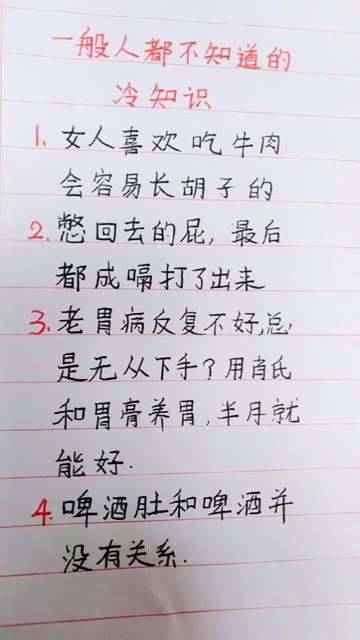 一般人都不知道的
冷知识
1. 女人喜欢吃牛肉
会容易长胡子的
2. 憋回去的屁, 最后
都成嗝打了出来
3. 老胃病反复不好,总
是无从下手?用肖氏
和胃膏养胃,半月就
能好.
4. 啤酒肚和啤酒并
没有关系.